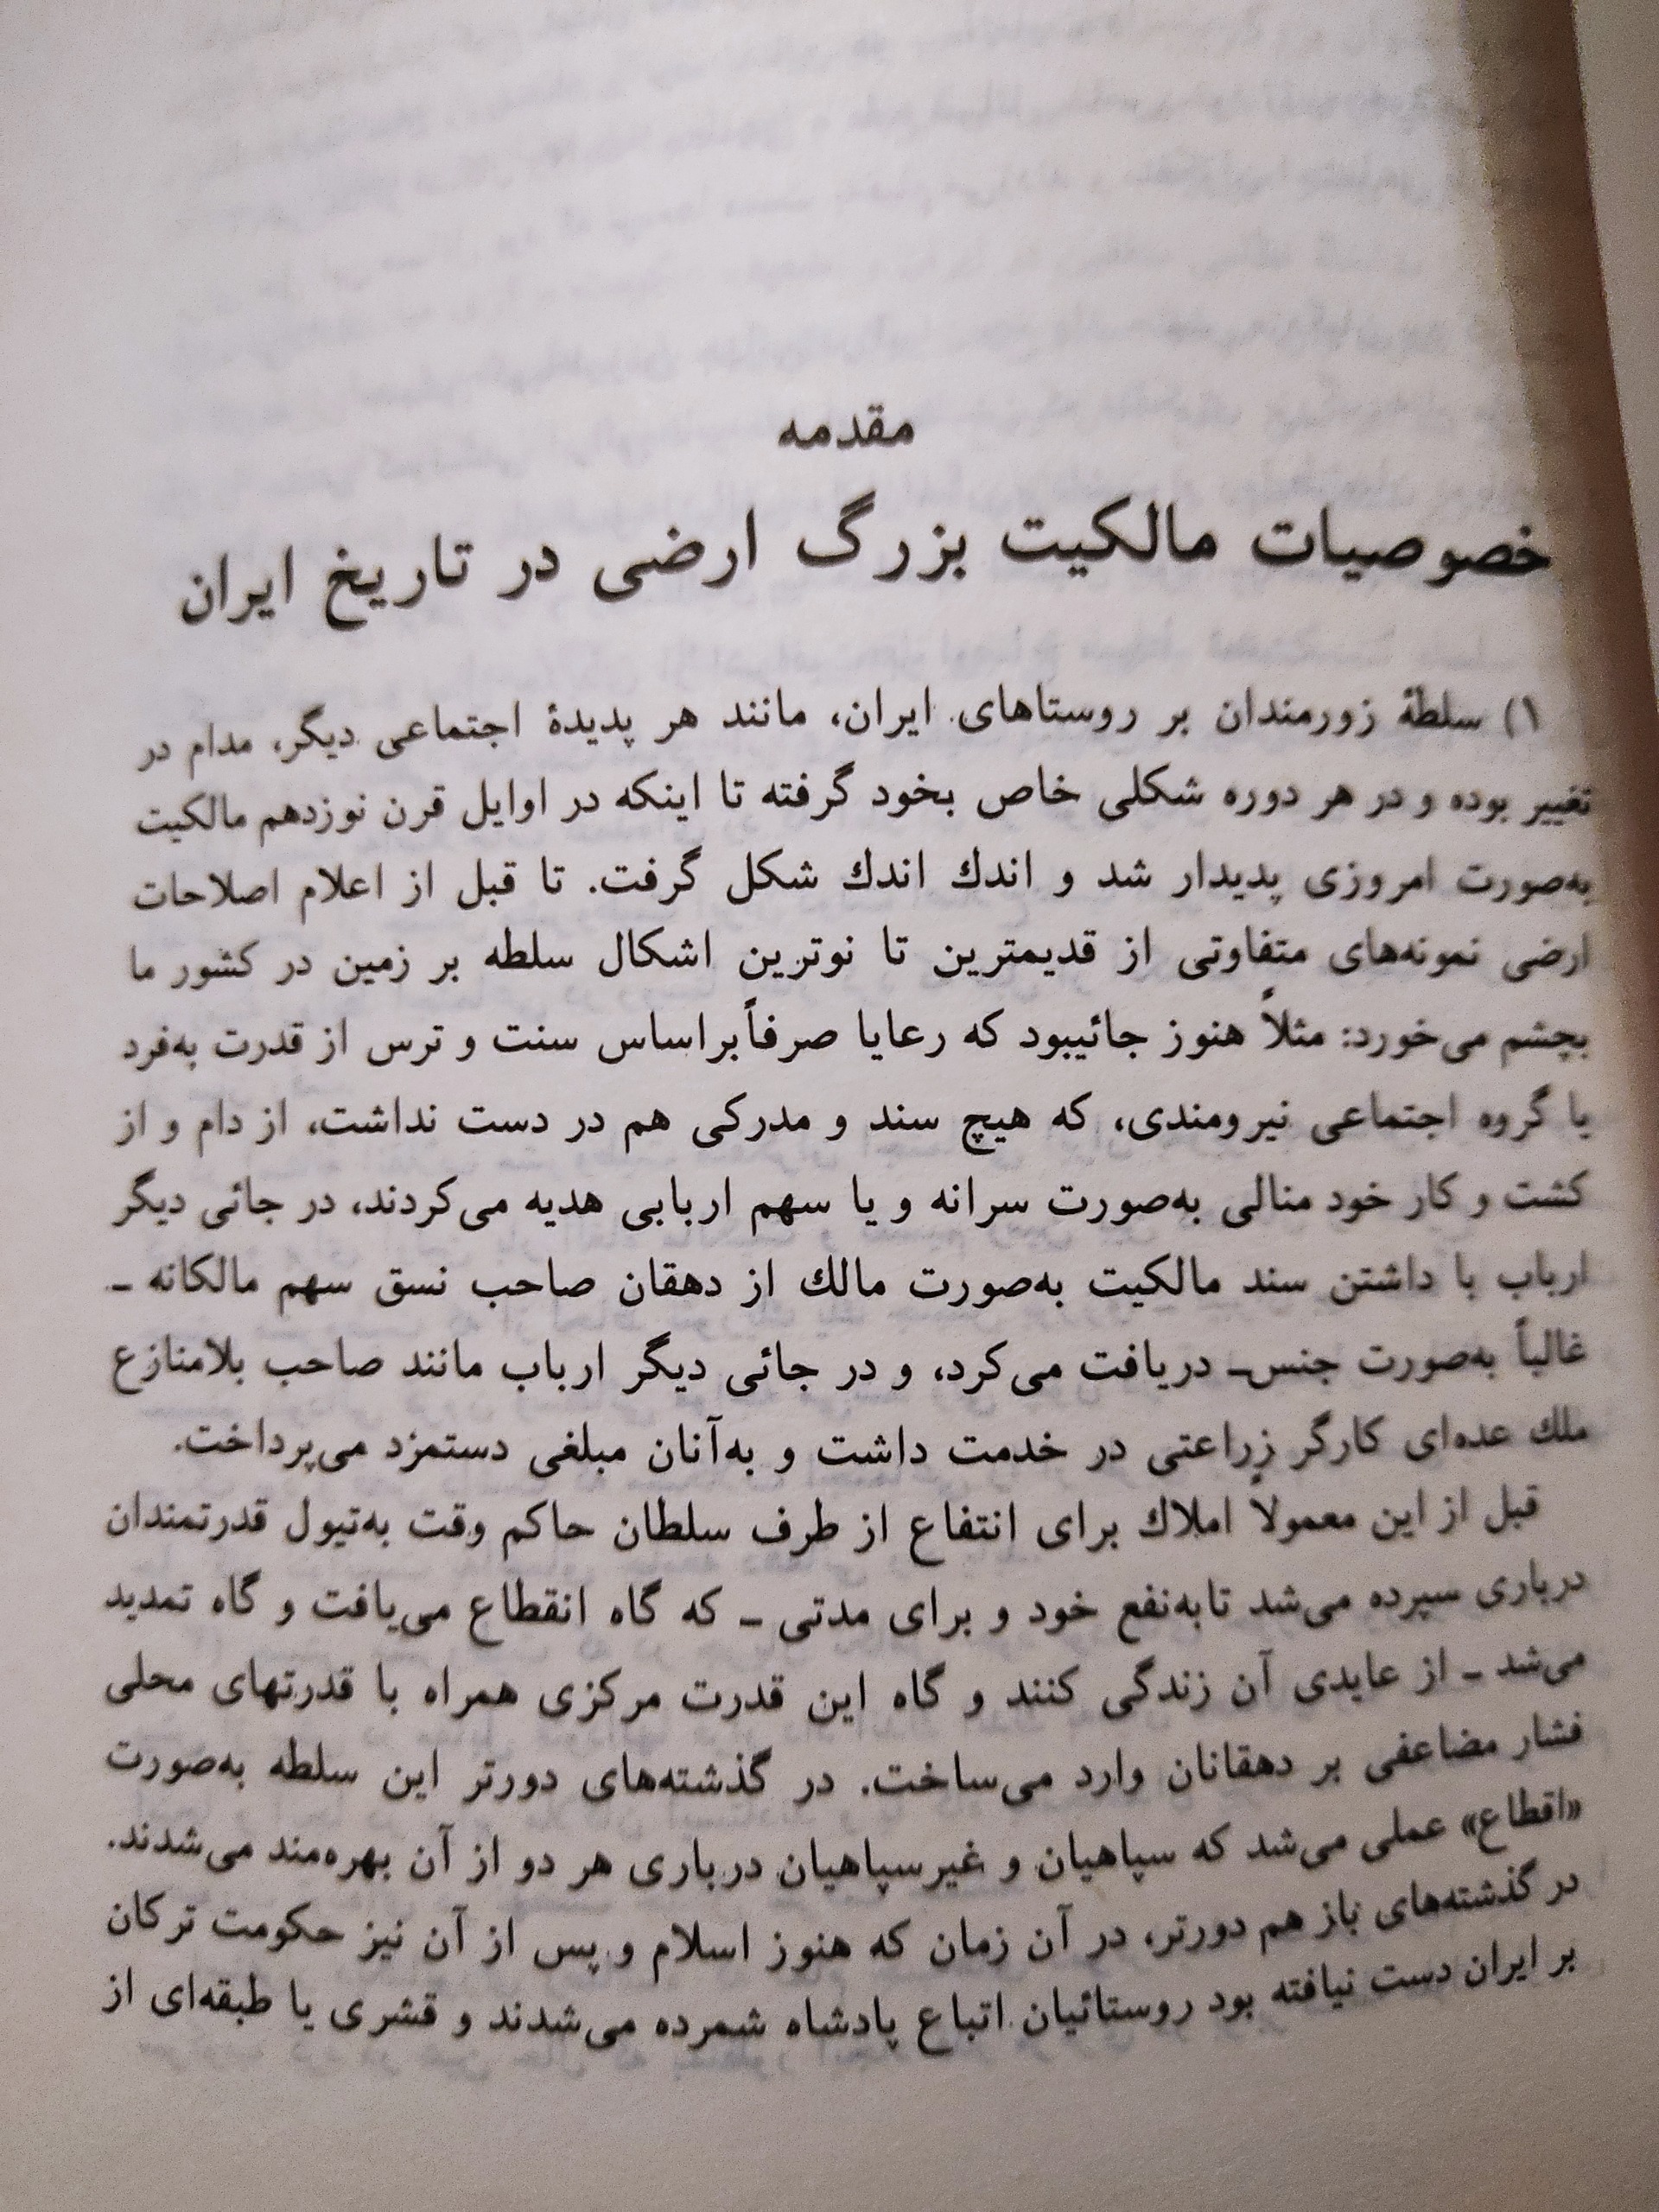 مقدمه
خصوصیات مالکیت بزرگ ارضی در تاریخ ایران
۱) سلطهٔ زورمندان بر روستاهای ایران، مانند هر پدیدهٔ اجتماعی دیگر، مدام در
تغییر بوده و در هر دوره شکلی خاص بخود گرفته تا اینکه در اوایل قرن نوزدهم مالکیت
به‌صورت امروزی پدیدار شد و اندك اندك شکل گرفت. تا قبل از اعلام اصلاحات
ارضی نمونه‌های متفاوتی از قدیمترین تا نوترین اشکال سلطه بر زمین در کشور ما
بچشم می‌خورد: مثلاً هنوز جائیبود که رعایا صرفاً براساس سنت و ترس از قدرت به‌فرد
یا گروه اجتماعی نیرومندی، که هیچ سند و مدرکی هم در دست نداشت، از دام و از
کشت و کار خود منالی به‌صورت سرانه و یا سهم اربابی هدیه می‌کردند، در جائی دیگر
ارباب با داشتن سند مالکیت به‌صورت مالك از دهقان صاحب نسق سهم مالکانه ـ
غالباً به‌صورت جنس‌ـ دریافت می‌کرد، و در جائی دیگر ارباب مانند صاحب بلامنازع
ملك عده‌ای کارگر زراعتی در خدمت داشت و به‌آنان مبلغی دستمزد می‌پرداخت.
قبل از این معمولاً املاك برای انتفاع از طرف سلطان حاکم وقت به‌تیول قدرتمندان
درباری سپرده می‌شد تابه‌نفع خود و برای مدتی ـ که گاه انقطاع می‌یافت و گاه تمدید
می‌شد ـ از عایدی آن زندگی کنند و گاه این قدرت مرکزی همراه با قدرتهای محلی
فشار مضاعفی بر دهقانان وارد می‌ساخت. در گذشته‌های دورتر این سلطه به‌صورت
«اقطاع» عملی می‌شد که سپاهیان و غیرسپاهیان درباری هر دو از آن بهره‌مند می‌شدند.
در گذشته‌های باز هم دورتر، در آن زمان که هنوز اسلام و پس از آن نیز حکومت ترکان
بر ایران دست نیافته بود روستائیان اتباع پادشاه شمرده می‌شدند و قشری یا طبقه‌ای از